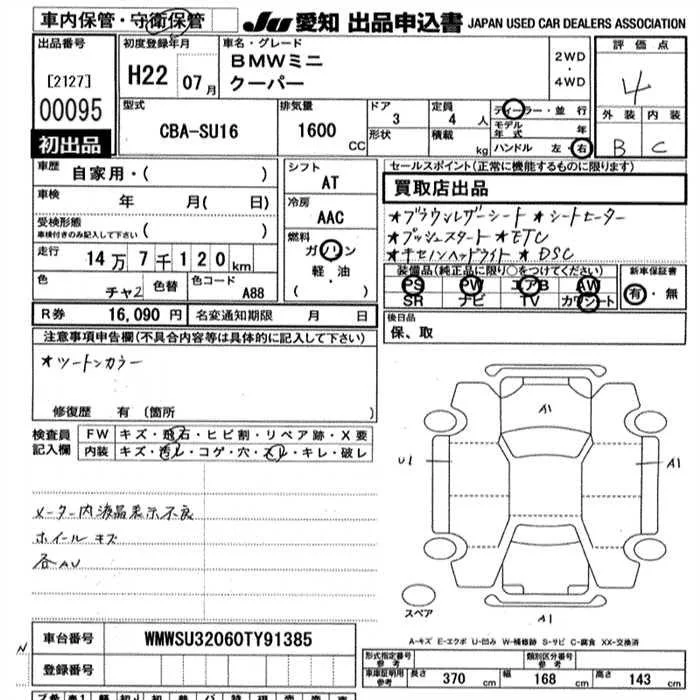 車内保管・守衛保管
JU 愛知 出品申込書 JAPAN USED CAR DEALERS ASSOCIATION
出品番号
[2127]
00095
初出品
初度登録年月
H22 07月
車名・グレード
BMWミニ
クーパー
2WD
・
4WD
評価点
4
外装 内装
B C
型式
CBA-SU16
排気量
1600 CC
ドア
3
形状
定員
4 人
積載
kg
ディーラー・並行
モデル年式 年
ハンドル 左・右
車歴
自家用・( )
車検
年 月( 日)
受検形態
車検付きのみ記入して下さい ( )
走行
14万7千120km
色
チャ2
色替
色コード
A88
シフト
AT
冷房
AAC
燃料
ガソリン
軽・油
( )
セールスポイント(正常に機能するものに限ります)
買取店出品
★ブラウンレザーシート ★シートヒーター
★プッシュスタート ★ETC
★キセノンヘッドライト ★DSC
装備品(純正品に限り○をつけてください)
PS PW エアB AW
SR ナビ TV カワシート
新車保証書
有・無
R券 16,090 円 名変通知期限 月 日
後日品
保、取
注意事項申告欄(不具合内容等は具体的に記入して下さい)
★ツートンカラー
修復歴 有 (箇所 )
検査員記入欄
FW キズ・飛石・ヒビ割・リペア跡・X要
内装 キズ・汚レ・コゲ・穴・スレ・キレ・破レ
メーター内液晶表示不良
ホイールキズ
各AU
A1
U1
A1
A1
スペア
A-キズ E-エクボ U-凹み W-補修跡 S-サビ C-腐食 XX-交換済
車台番号 WMWSU32060TY91385
登録番号
型式指定番号
参考
類別区分番号
参考
車庫証明用
参考
長さ 370 cm 幅 168 cm 高さ 143 cm